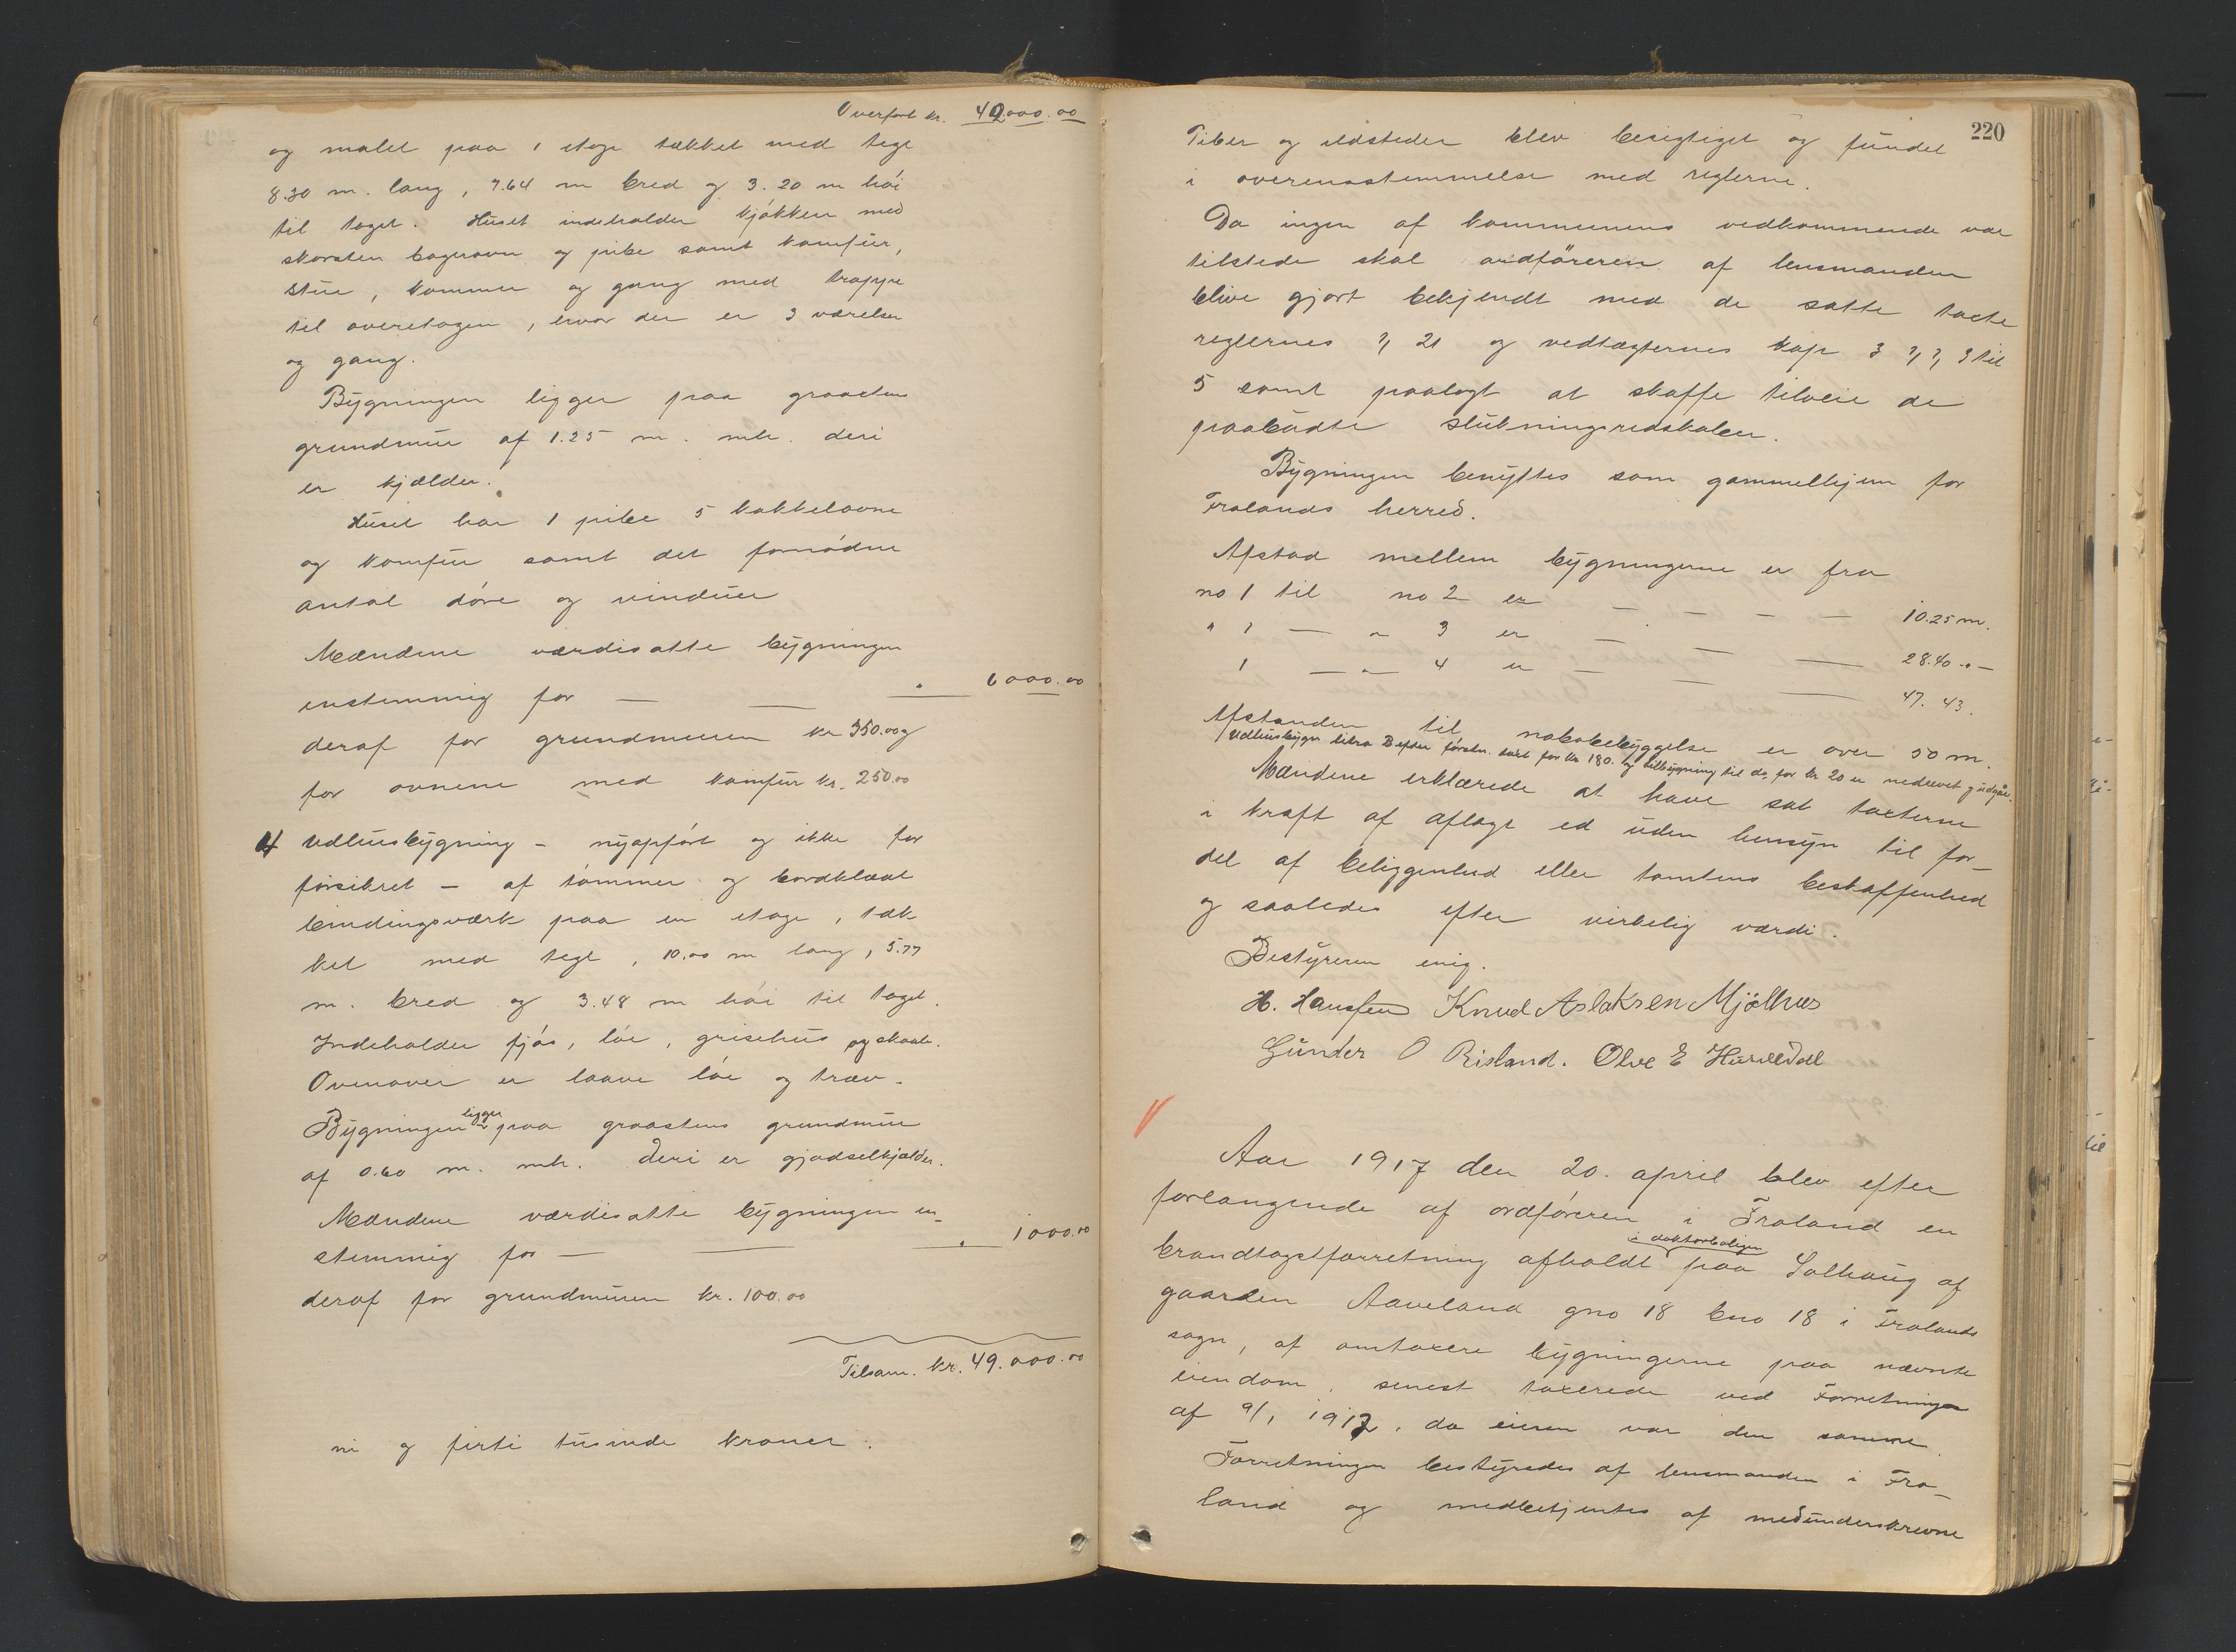 Overført kr. 42000.00
og malet paa 1 etage tækket med tegl
8.30 m. lang, 7.64 m bred og 3.20 m høi
til taget. Huset indeholder kjøkken med
skorsten bagerovn og pibe samt komfur,
stue, kammer og gang med trappe
til overetagen, hvor der er 3 værelser
og gang.
Bygningen ligger paa graastens
grundmur af 1.25 m. mh. deri
er kjælder.
Huset har 1 pibe 5 kakkelovne
og komfur samt det fornødne
antal døre og vinduer
Mændene værdisatte bygningen
enstemmig for — — " — 6000.00
deraf for grundmuren kr 350.00 og
for ovnene med komfur kr. 250.00
4 Udhusbygning – nyopført og ikke før
forsikret – af tømmer og bordklædt
bindingsværk paa en etage, tæk
ket med tegl, 10.00 m lang, 5.77
m. bred og 3.48 m høi til taget.
Indeholder fjøs, løe, grisehus og skaale.
Ovenover er laave løe og træv.
Bygningen ligger paa graastens grundmur
af 0.60 m. mh. deri er gjødselkjælder.
Mændene værdisatte bygningen en-
stemmig for — — " — 1000.00
deraf for grundmuren kr. 100.00
Tilsam. kr. 49.000.00
ni og firti tusinde kroner.
220
Piber og ildsteder blev besigtiget og fundet
i overensstemmelse med reglerne.
Da ingen af kommunens vedkommende var
tilstede skal ordføreren af lensmanden
blive gjort bekjendt med de satte takte
reglernes § 21 og vedtægternes kap 3 §§ 3 til
5 samt paalagt at skaffe tilveie de
paabudte slukningsredskaber.
Bygningen benyttes som gammelhjem for
Frolands herred.
Afstad mellem bygningerne er fra
no 1 til no 2 er — — — — 10.25 m.
" 1 — " 3 er — — — 28.40 " —
1 — " 4 er — — — 47.43.
Afstanden til nabobebyggelse er over 50 m.
Udhusbygn litra B efter forretn. takt for kr 180. og tilbygning til do. for kr 20 er nedrevet og udgår.
Mændene erklærede at have sat takterne
i kraft af aflagt ed uden hensyn til for-
del af beliggenhed eller tomtens beskaffenhed
og saaledes efter virkelig værdi.
Bestyreren enig.
H. Hansen Knud Aslaksen Mjølhus
Gunder O Risland. Olve E Hurvedal
Aar 1917 den 20. april blev efter
forlangende af ordføreren i Froland en
brandtagstforretning afholdt i doktorboligen paa Solhaug af
gaarden Aaveland gno 18 bno 18 i Frolands
sogn, af omtaxere bygningerne paa nævnte
eiendom, senest taxerede ved Forretninger
af 9/1 1912, da eieren var den samme.
Forretningen bestyredes af lensmanden i Fro-
land og medbetjentes af medunderskrevne